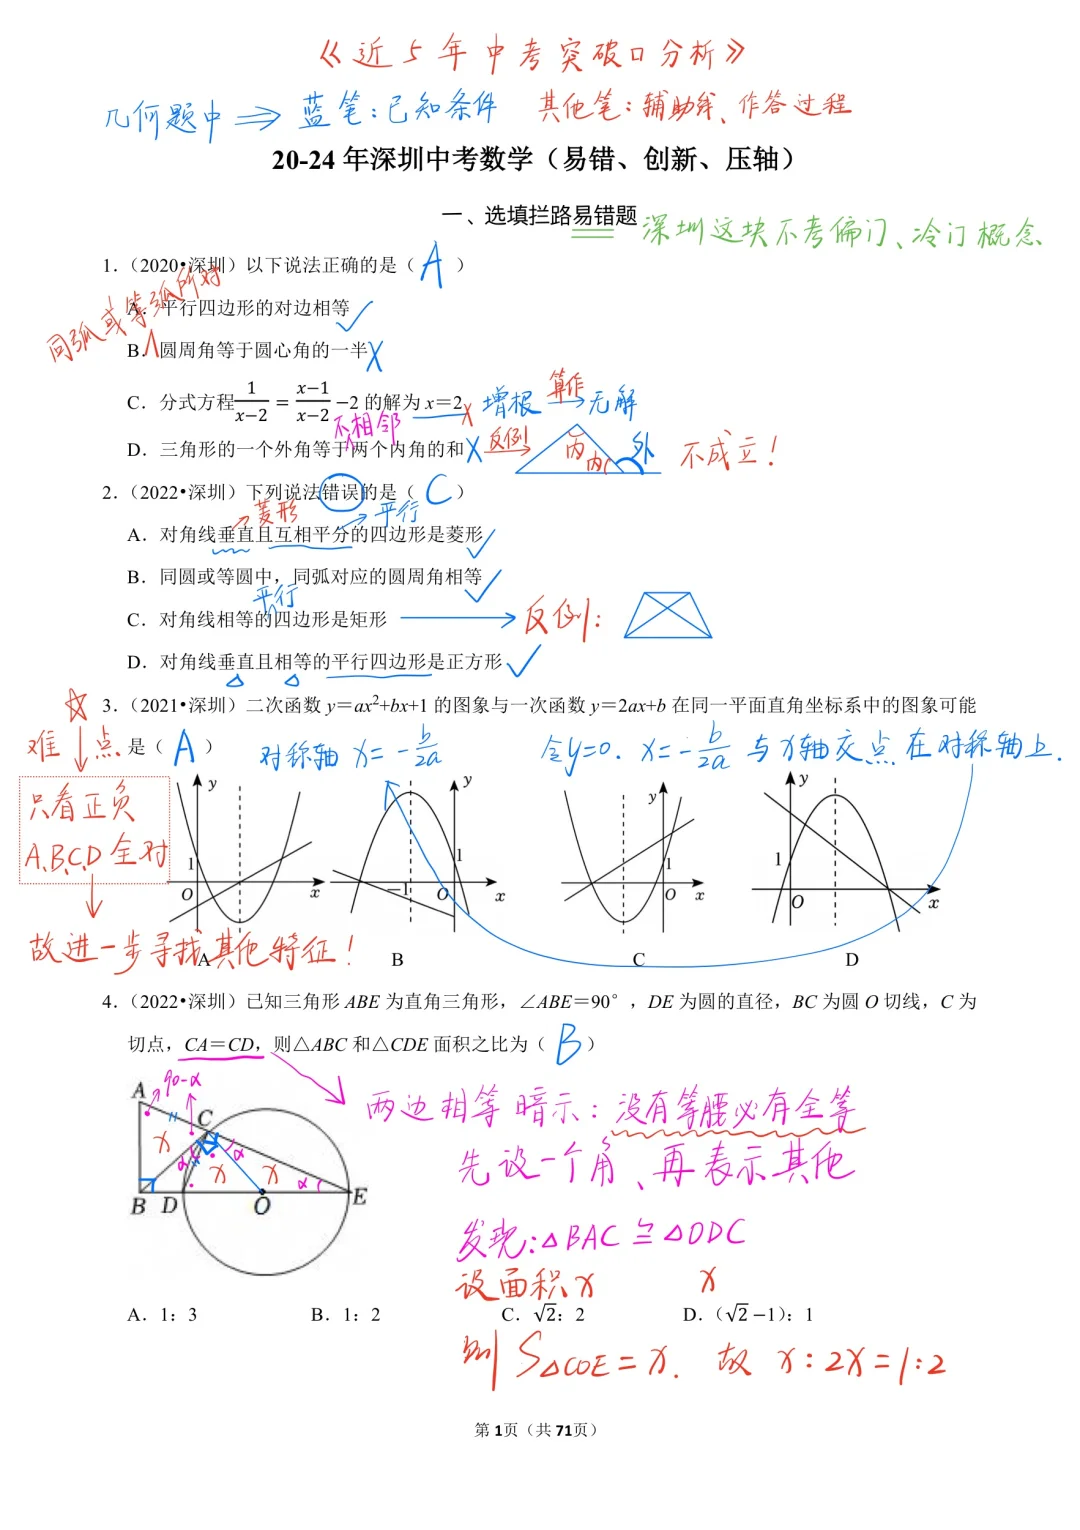 《近5年中考突破口分析》
几何题中 ⇒ 蓝笔:已知条件 其他笔:辅助线、作答过程
20-24年深圳中考数学（易错、创新、压轴）
一、选填拦路易错题 深圳这块不考偏门、冷门概念
1.（2020•深圳）以下说法正确的是（ A ）
同弧或等弧所对
A．平行四边形的对边相等 ✓
B．∧圆周角等于圆心角的一半 X
C．分式方程 1/(x−2) = (x−1)/(x−2) −2 的解为 x＝2 X 增根 算作→ 无解
不相邻
D．三角形的一个外角等于两个内角的和 X 反例→ 内 内 外 不成立!
2.（2022•深圳）下列说法错误的是（ C ）
→菱形 →平行
A．对角线垂直且互相平分的四边形是菱形 ✓
B．同圆或等圆中，同弧对应的圆周角相等 ✓
平行
C．对角线相等的四边形是矩形 → 反例:
D．对角线垂直且相等的平行四边形是正方形 ✓
☆ 3.（2021•深圳）二次函数 y＝ax²+bx+1 的图象与一次函数 y＝2ax+b 在同一平面直角坐标系中的图象可能
难↓点 是（ A ） 对称轴 x=-b/2a 令y=0. x=-b/2a 与x轴交点在对称轴上.
只看正负
A、B、C、D 全对
↓
故进一步寻找其他特征!
y 1 O x
y 1 −1 O x
y 1 O x
y 1 O x
A B C D
4.（2022•深圳）已知三角形 ABE 为直角三角形，∠ABE＝90°，DE 为圆的直径，BC 为圆 O 切线，C 为
切点，CA＝CD，则△ABC 和△CDE 面积之比为（ B ）
A 90-α C B D O E
x α α x x α
两边相等暗示:没有等腰必有全等
先设一个角、再表示其他
发现:△BAC≌△ODC
设面积 x x
A．1：3 B．1：2 C．√2：2 D．（√2−1）：1
则 S△COE=x. 故 x:2x=1:2
第 1页（共 71页）